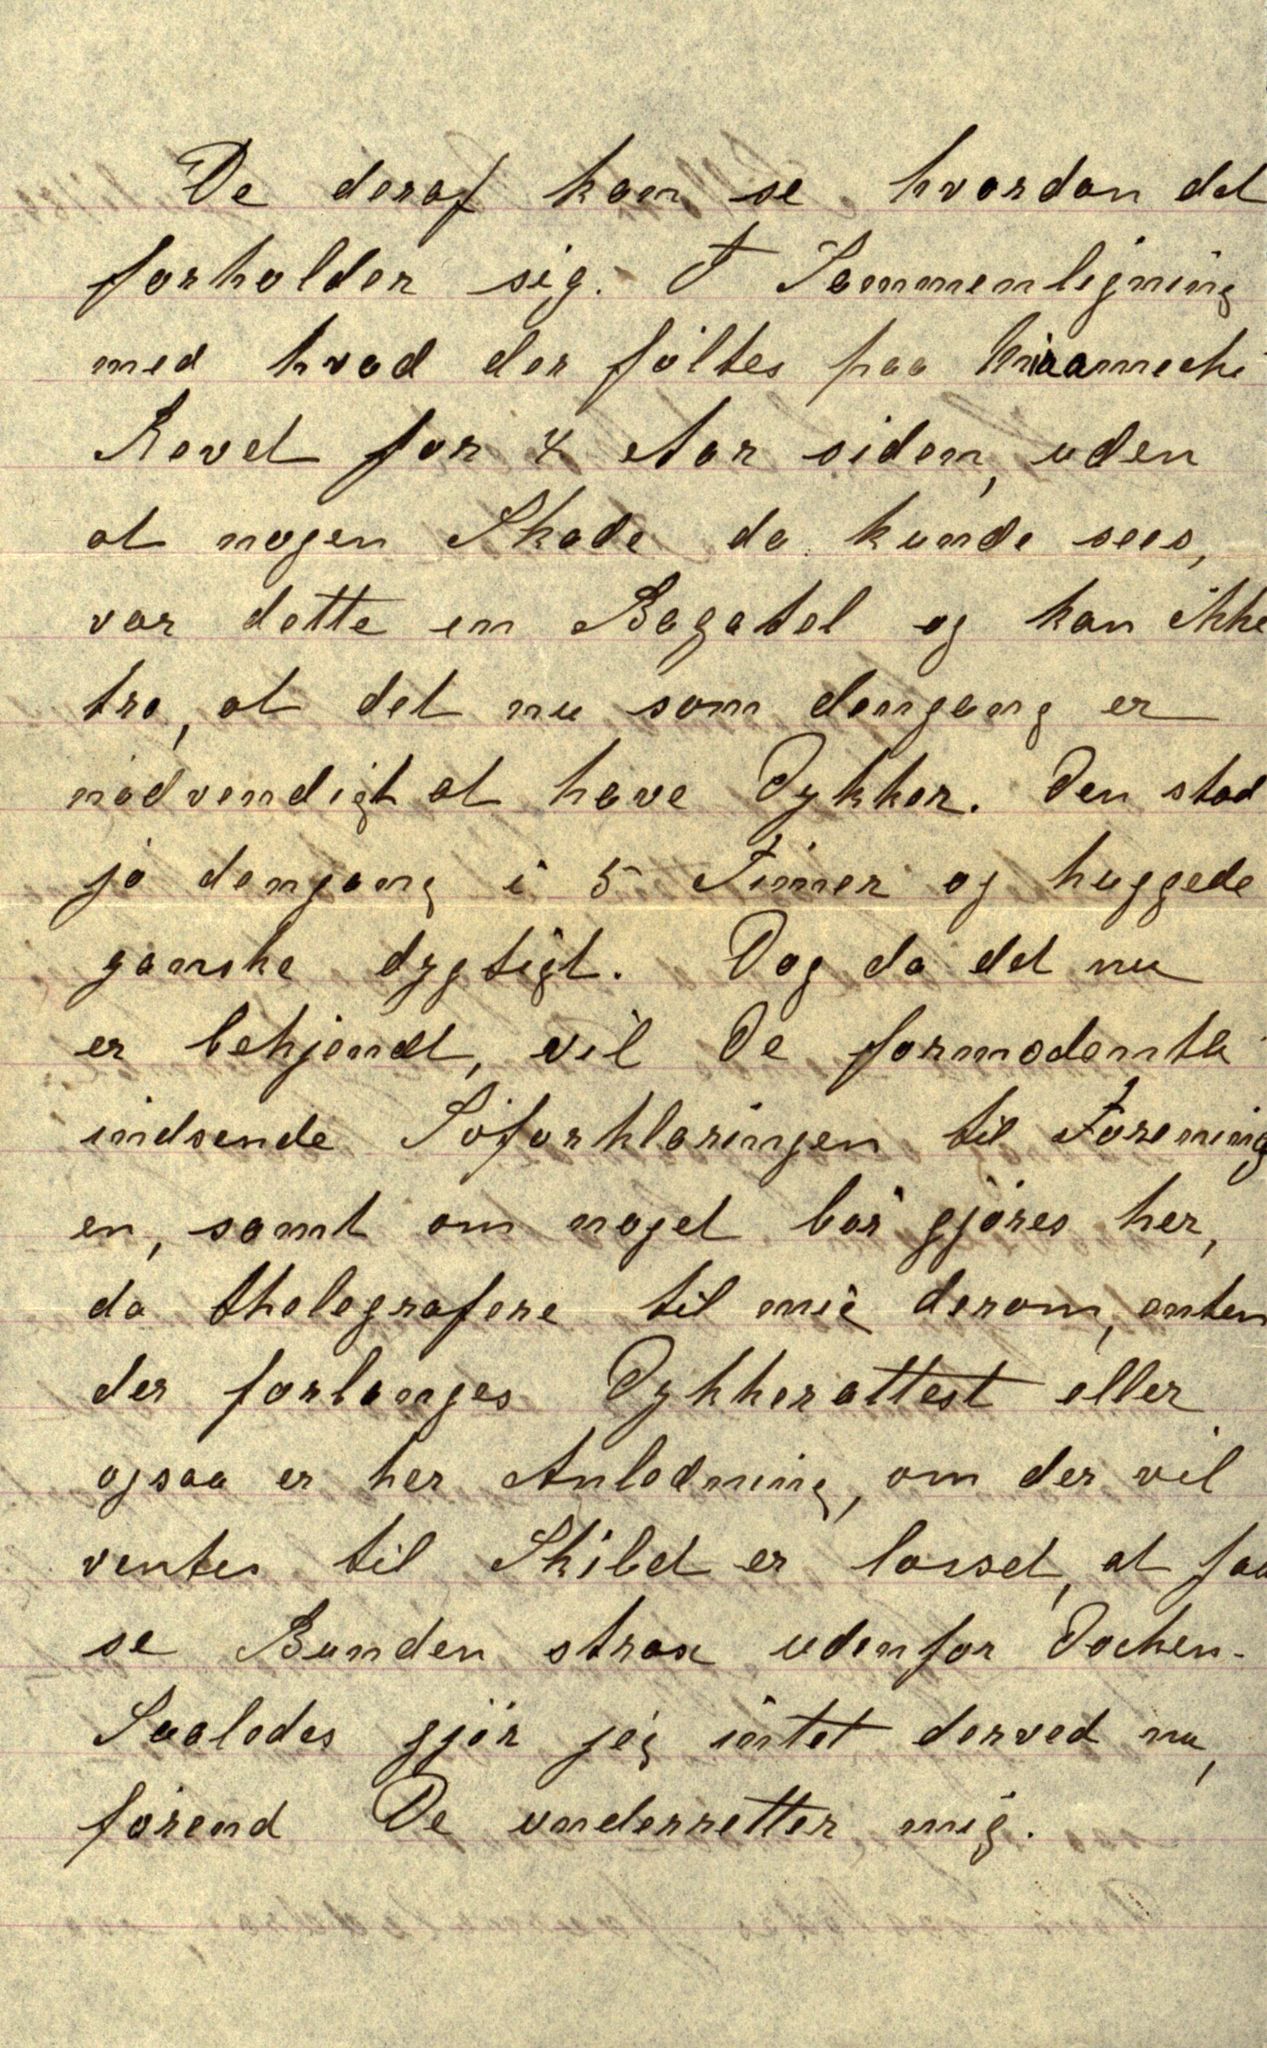 De deraf kan se hvordan det
forholder sig. I Sammenligning
med hvad der föltes paa Miramichi
Revet for 4 Aar siden, uden
at nogen Skade da kunde sees,
var dette en Bagatel og kan ikke
tro, at det nu som dengang er
nödvendigt at have Dykker. Den stod
jo dengang i 5 Timer og huggede
ganske dygtigt. Dog da det nu
er bekjendt, vil De formodentli
indsende Söforklaringen til Forening
en, samt om noget bör gjöres her,
da thelegrafere til mig derom, enten
der forlanges Dykkerattest eller
ogsaa er her Anledning, om der vil
ventes til Skibet er losset, at faa
se Bunden strax udenfor Docken.
Saaledes gjör jeg intet derved nu,
förend De underretter mig.